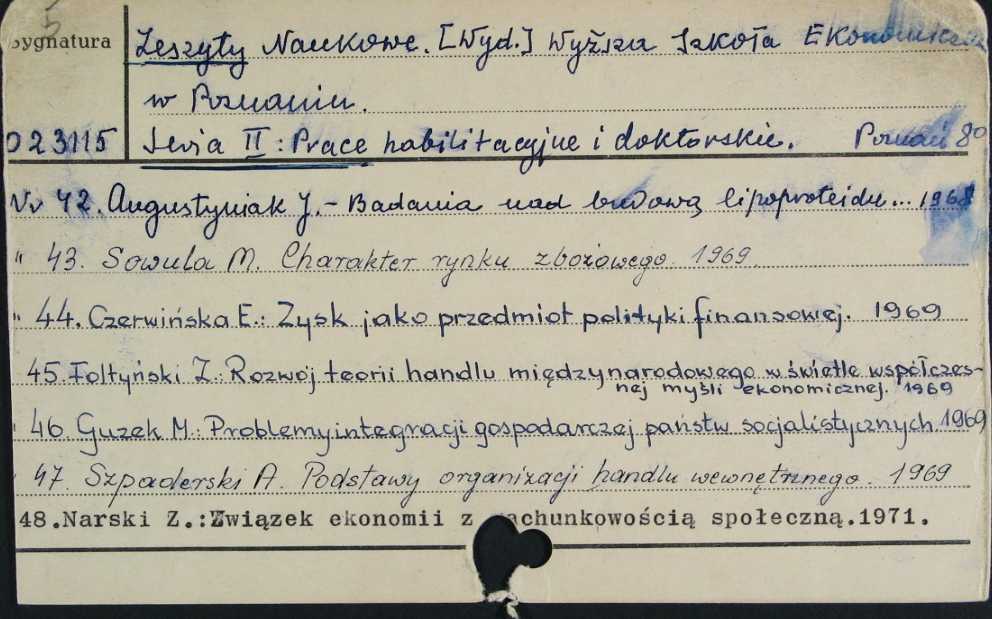 5
Sygnatura
Zeszyty Naukowe. [Wyd.] Wyższa Szkoła Ekonomiczna
w Poznaniu.
023115
Seria II: Prace habilitacyjne i doktorskie. Poznań 8°
Nr 42. Augustyniak J. - Badania nad budową lipoproteidu... 1968
" 43. Sowula M. Charakter rynku zbożowego. 1969
" 44. Czerwińska E.: Zysk jako przedmiot polityki finansowej. 1969
45. Fołtyński Z.: Rozwój teorii handlu międzynarodowego w świetle współczes-
nej myśli ekonomicznej. 1969
" 46. Guzek M.: Problemy integracji gospodarczej państw socjalistycznych 1969
" 47. Szpaderski A. Podstawy organizacji handlu wewnętrznego. 1969
48.Narski Z.:Związek ekonomii z achunkowością społeczną.1971.